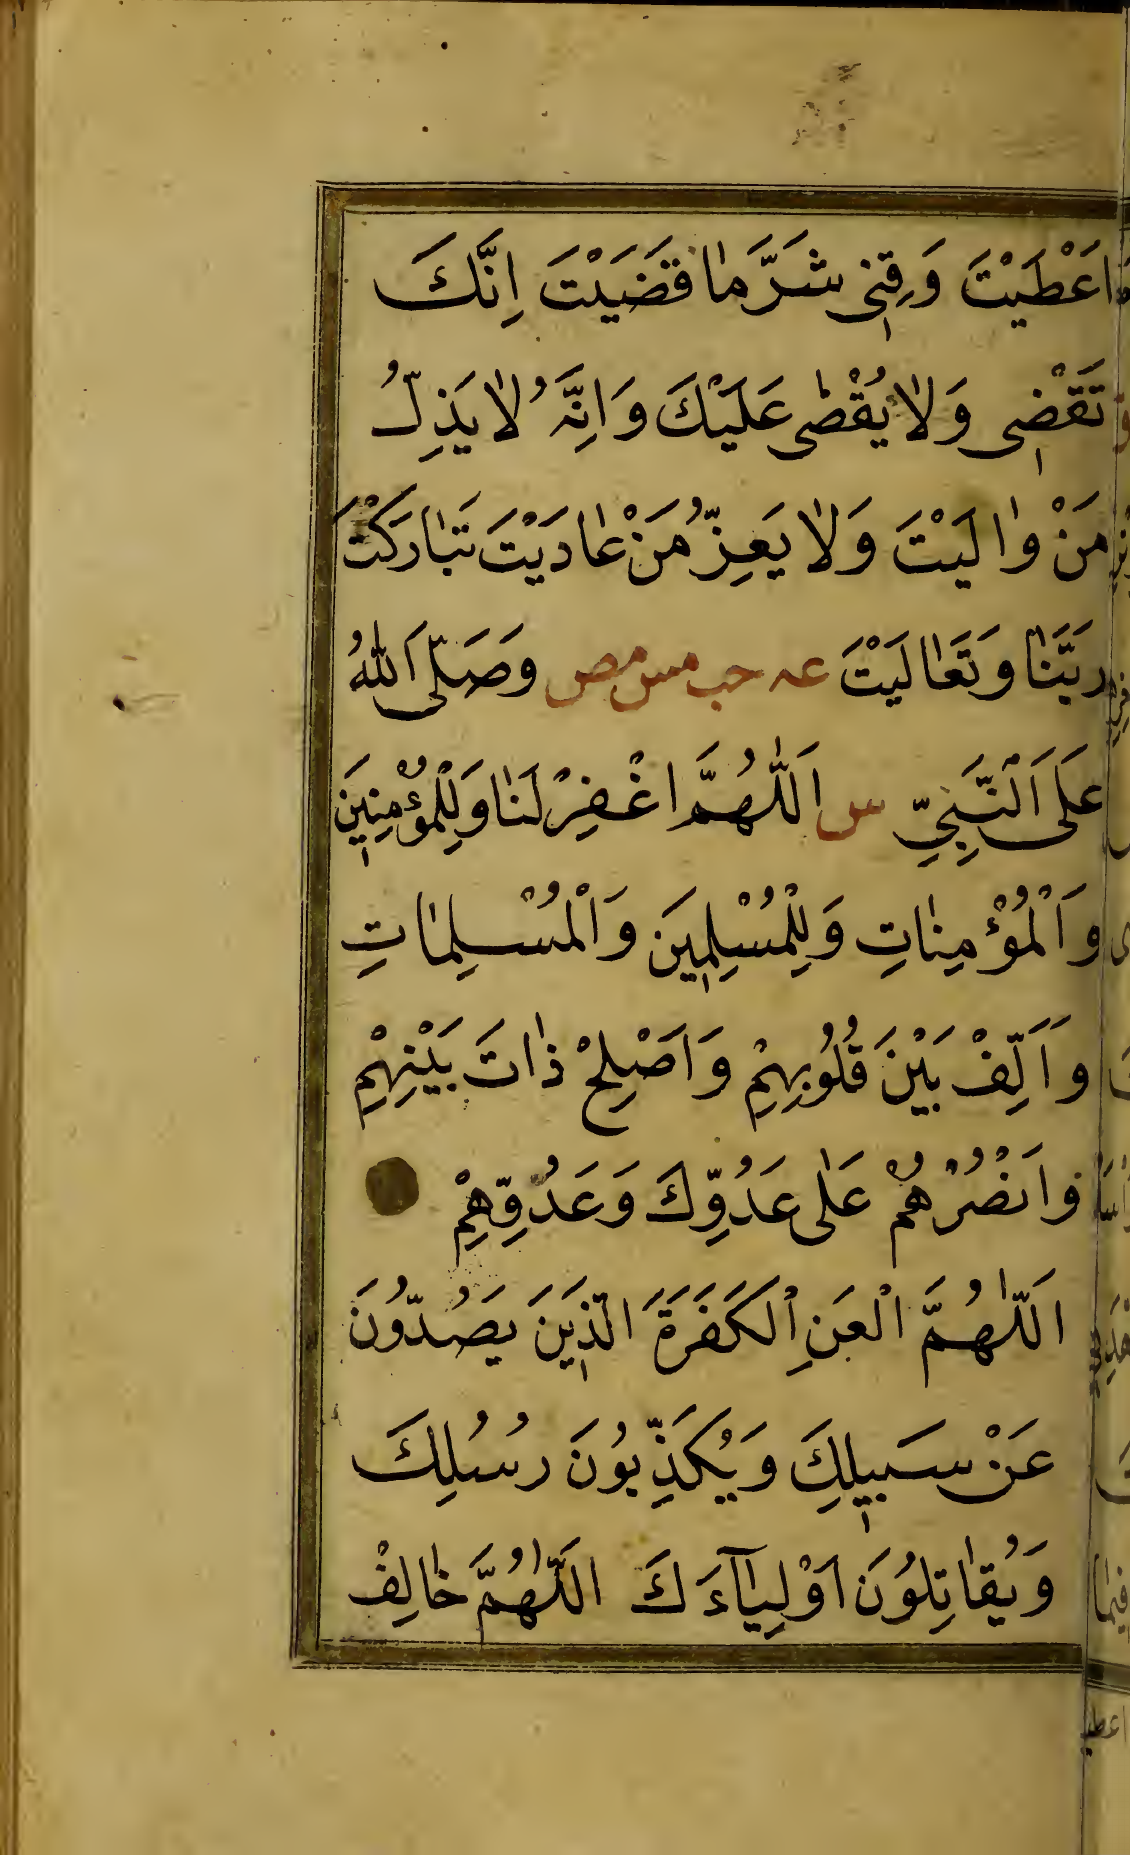 اَعْطَيْتَ وَقِنِى شَرَّ مٰا قَضَيْتَ اِنَّكَ
تَقْضِى وَلٰا يُقْضٰى عَلَيْكَ وَاِنَّهُ لٰا يَذِلُّ
مَنْ وٰالَيْتَ وَلٰا يَعِزُّ مَنْ عٰادَيْتَ تَبٰارَكْتَ
رَبَّنٰا وَتَعٰالَيْتَ عه حب مس مص وَصَلَّى اَللّٰهُ
عَلَى اَلْنَّبِىِّ س اَللّٰهُمَّ اغْفِرْ لَنٰا وَلِلْمُؤْمِنِينَ
وَاَلْمُؤْمِنٰاتِ وَلِلْمُسْلِمِينَ وَاَلْمُسْلِمٰاتِ
وَاَلِّفْ بَيْنَ قُلُوبِهِمْ وَاَصْلِحْ ذٰاتَ بَيْنِهِمْ
وَانْصُرْهُمْ عَلٰى عَدُوِّكَ وَعَدُوِّهِمْ
اَللّٰهُمَّ الْعَنِ اْلكَفَرَةَ الَّذِينَ يَصُدُّونَ
عَنْ سَبِيلِكَ وَيُكَذِّبُونَ رُسُلِكَ
وَيُقٰاتِلُونَ اَوْلِيٰآءَكَ اللّٰهُمَّ خٰالِفْ